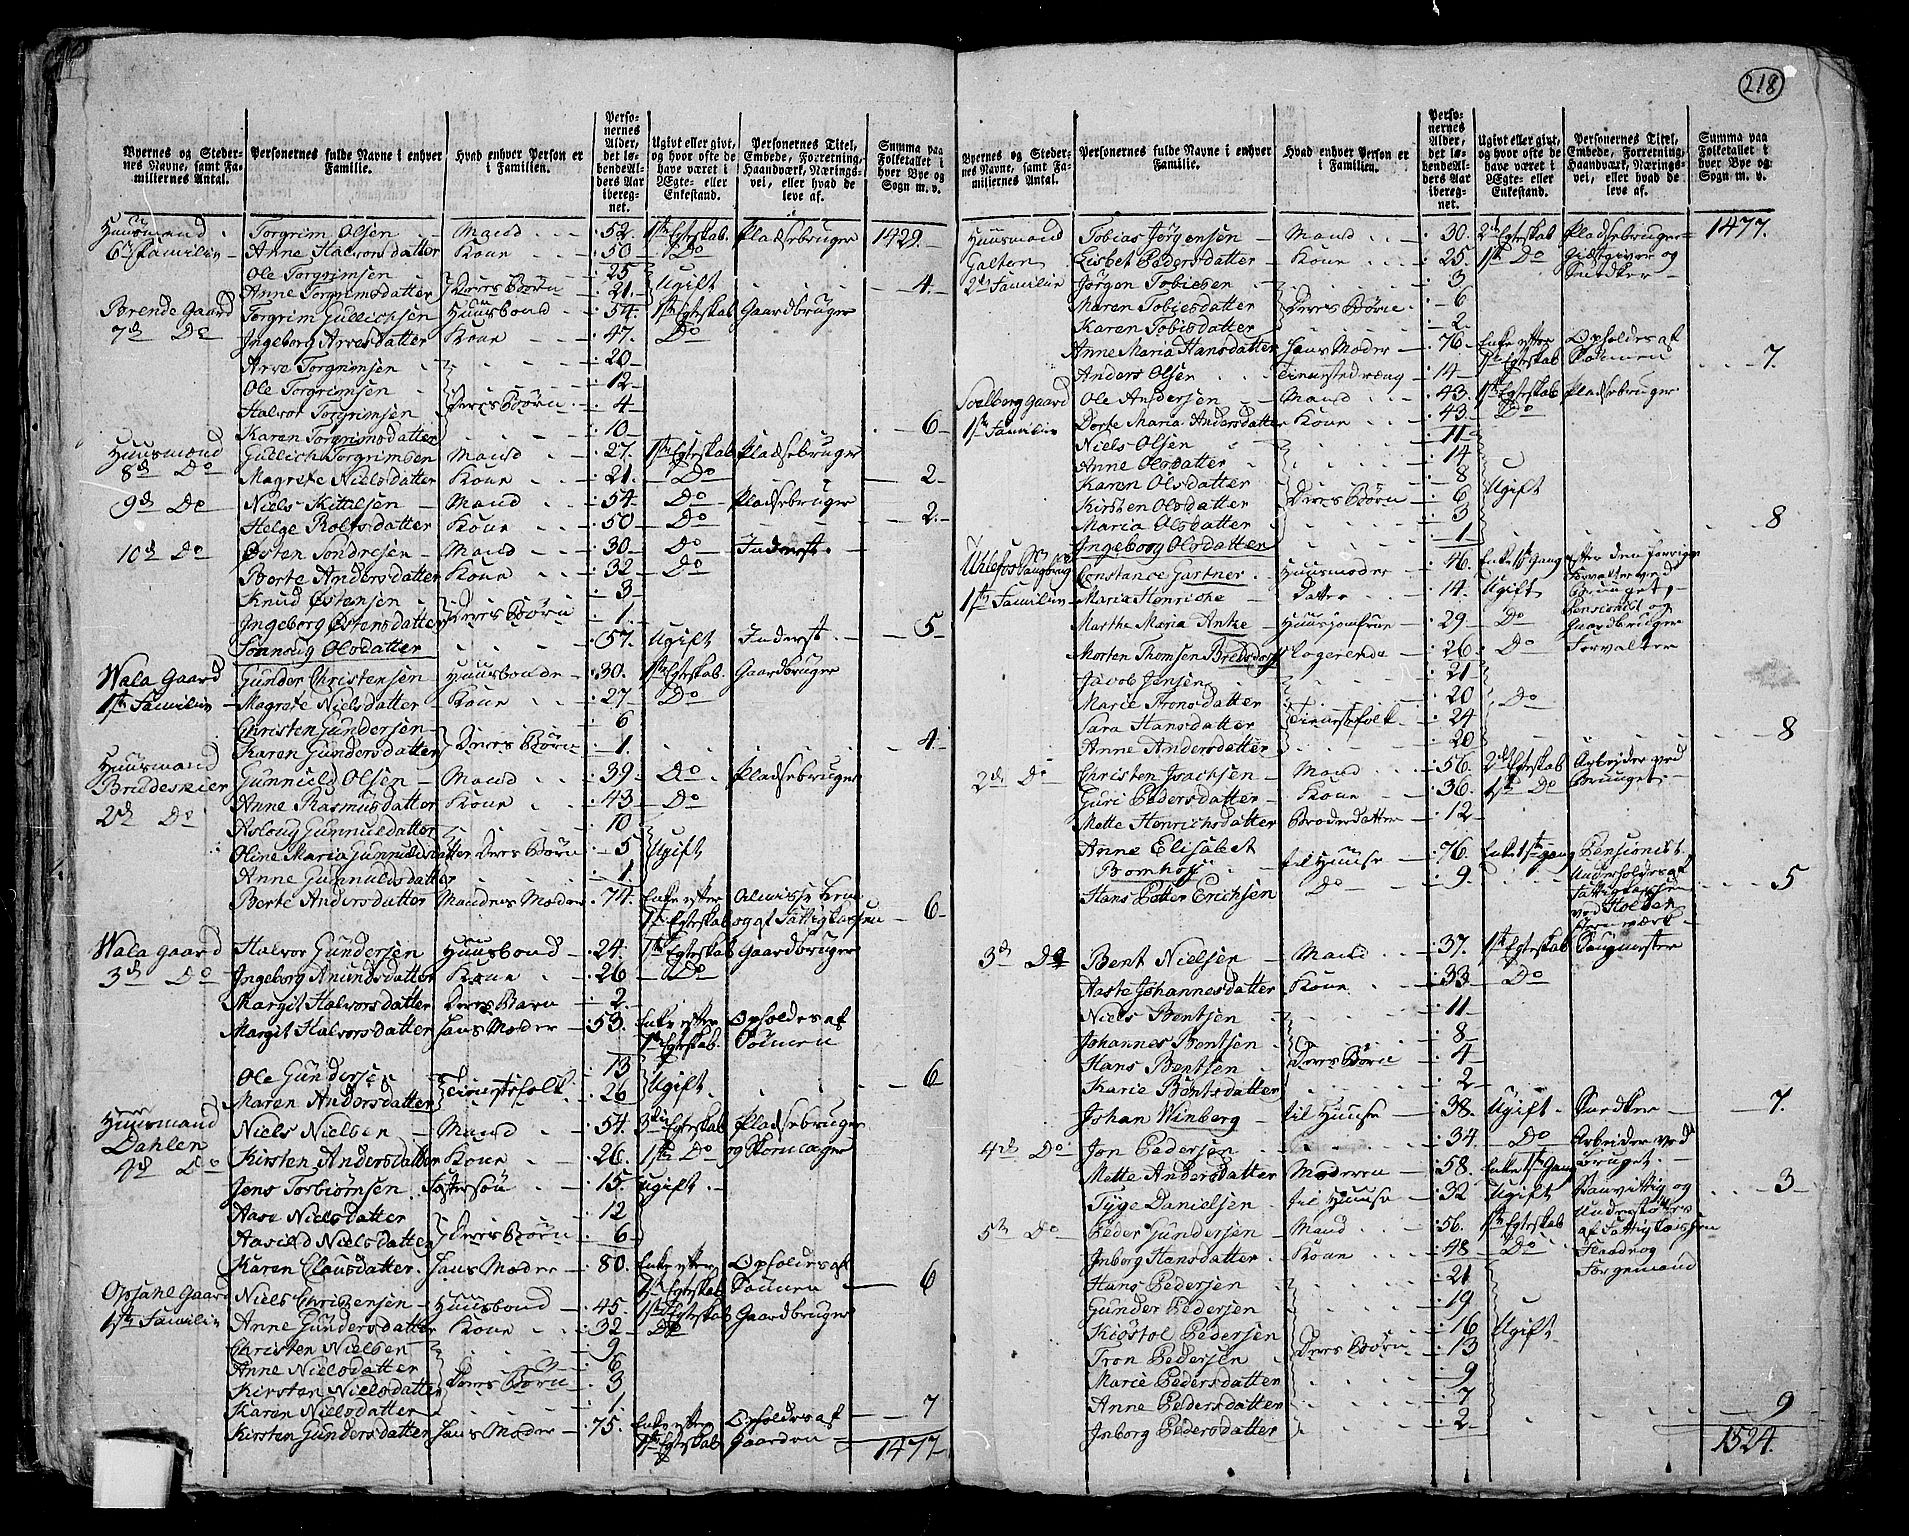 218
Byernes og Steder- Personernes fulde Navne i enhver Hvad enhver Person er Perso- Ugivt eller givt, Personernes Titel, Summa paa
nes Navne, samt Fa- Familie. i Familien. nernes og hvor ofte de Embede, Forretning, Folketallet i
miliernes Antal. Alder, have været i Haandværk, Nærings- hver Bye og
det lø- Ægte- eller vei, eller hvad de Sogn m. v.
bende Al- Enkestand. leve af.
ders Aar
ibereg-
net.
Huusmand Torgrim Olsen Mand 52. 1ste Egteskab. Pladsebruger 1429.
6te Familie Anne Halvorsdatter Kone 50 Do
Ole Torgrimsen 25
Anne Torgrimsdatter Deres Børn 21. Ugift 4.
Brende Gaard Torgrim Gullichsen Huusbond 54. 1ste Egteskab Gaardbruger
7de Do Ingeborg Arvesdatter Kone 47. Do
Arve Torgrimsen 20
Ole Torgrimsen 12
Halvor Torgrimsen Deres Børn 4
Karen Torgrimsdatter 10 6
Huusmand Gullich Torgrimsen Mand 27. 1ste Egteskab Pladsebruger
8de Do Magrete Nielsdatter Kone 21. Do 2
9de Do Niels Kittelsen Mand 54. Do Pladsebruger
Helge Rolfsdatter Kone 50 Do 2.
10de Do Østen Tondresen Mand 30. Do Inderst.
Berte Andersdatter Kone 32 Do
Knud Østensen 3
Ingeborg Østensdatter Deres Børn 1. 5
Tonnoug Olsdatter 57. Ugift Inderst.
Wala Gaard Gunder Christensen Huusbonde 30. 1ste Egteskab. Gaardbruger
1ste Familie Magrete Nielsdatter Kone 27 Do
Christen Gundersen 6
Karen Gundersdatter Deres Børn 1. 4
Huusmand
Brudeskier Gunnild Olsen Mand 39. Do Pladsebruger
2de Do Anne Rasmusdatter Kone 43 Do
Aslaug Gunnuldatter 10
Oline Maria Gunnuldsdatter Deres Børn 5 Ugift
Anne Gunnuldsdatter 1
Berte Andersdatter Mandens Moder 74. Enke efter Almisse Lem
1ste Egteskab og af Fattigkassen 6
Wala Gaard Halvor Gundersen Huusbond 24. 1ste Egteskab Gaardbruger
3de Do Ingeborg Anundsdatter Kone 26 Do
Margit Halvorsdatter Deres Barn 2.
Margit Halvorsdatter Hans Moder 53. Enke efter Opholdes af
1ste Egteskab. Sønnen
Ole Gundersen 13
Maren Andersdatter Tienestefolk 26 Ugift. 6
Huusmand
Dahlen Niels Nielsen Mand 54. 3die Egteskab Pladsebruger
4de Do Kirsten Andersdatter Kone 26. 1ste Do og Skomager
Jens Torbiørnsen Fostersøn 15. Ugift.
Aase Nielsdatter 12
Aasild Nielsdatter Deres Børn 6
Karen Clausdatter Hans Moder 80. Enke efter Opholdes af
1ste Egteskab Sønnen 6
Opsahl Gaard Niels Christensen Huusbond 45. 1ste Egteskab Gaardbruger
1ste Familie Anne Gundersdatter Kone 32 Do
Christen Nielsen 9
Anne Nielsdatter 6
Kirsten Nielsdatter Deres Børn 3
Karen Nielsdatter 1. 7
Kirsten Gundersdatter Hans Moder 75. Enke efter Opholdes af
1ste Egteskab Gaarden 1477
Byernes og Steder- Personernes fulde Navne i enhver Hvad enhver Person er Perso- Ugivt eller givt, Personernes Titel, Summa paa
nes Navne, samt Fa- Familie. i Familien. nernes og hvor ofte de Embede, Forretning, Folketallet i
miliernes Antal. Alder, have været i Haandværk, Nærings- hver Bye og
det lø- Ægte- eller vei, eller hvad de Sogn m. v.
bende Al- Enkestand. leve af.
ders Aar
ibereg-
net.
Huusmand Tobias Jørgensen Mand 30. 2det Egteskab Pladsebruger 1477.
Galten Lisbet Pedersdatter Kone 25 1ste Do Giæstgiver og
2de Familie Jørgen Tobiesen 3 Snedker
Maren Tobiesdatter Deres Børn 6
Karen Tobisdatter 2.
Anne Maria Hansdatter Hans Moder 76. Enke efter Opholdes af
1ste Egteskab Sønnen 7.
Anders Olsen Tienestedreng 14
Solberg Gaard Ole Andersen Mand 43. 1ste Egteskab Pladsebruger
1ste Familie Dorte Maria Andersdatter Kone 43. Do
Niels Olsen 11
Anne Olsdatter 14
Karen Olsdatter 8
Kirsten Olsdatter Deres Børn 6 Ugift
Maria Olsdatter 3
Ingeborg Olsdatter 1 8
Uhlefos Saugbrug Constance Gartner Huusmoder 46. Enke 1ste Gang efter den forrige
1ste Familie Maria Henriche Datter 14. Ugift Forvalter ved
Bruuget,
Marthe Maria Anke Huusjomfrue 29. Do Pensionist og
Gaardbruger
Morten Thomsen Bredsdorf Logerende 26 Do Forvalter
Jacob Jensen 21
Marie Tronsdatter 20 Do
Sara Hansdatter Tienestefolk 24
Anne Andersdatter 20 8
2de Do Christen Isachsen Mand 56. 2det Egteskab Arbeider ved
Guri Pedersdatter Kone 36. 1ste Do Bruuget.
Mette Henrichsdatter Broderdatter 12
Anne Elisabet
Bomhoff til Huuse 76. Enke 1ste gang Pensionist.
Hans Petter Erichsen Do 9. Underholdes af
Fattigkassen 5
ved Holden
Jernværk
3de Do Bent Nielsen Mand 37. 1ste Egteskab Saugmester
Aaste Johannesdatter Kone 33 Do
Niels Bentsen 11
Johannes Bentsen 8
Hans Bentsen Deres Børn 4
Karie Bentsdatter 2
Johan Winberg til Huuse 38. Ugift. Snedker 7.
4de Do Jon Pedersen 34. Do Arbeider ved
Mette Andersdatter Moderen 58. Enke 1ste Gang Bruget.
Tyge Danielsen til Huuse 32 Ugift Vanvittig og 3
Understøttes
5te Do Peder Gundersen Mand 56. 1ste Egteskab af Fattigkassen
Inborg Hansdatter Kone 48 Do
Forgemand
Hans Pedersen 21
Gunder Pedersen 19
Kiøstol Pedersen 16 Ugift.
Tron Pedersen Deres Børn 13
Marie Pedersdatter 9
Anne Pedersdatter 7
Inborg Pedersdatter 2 9
1524.